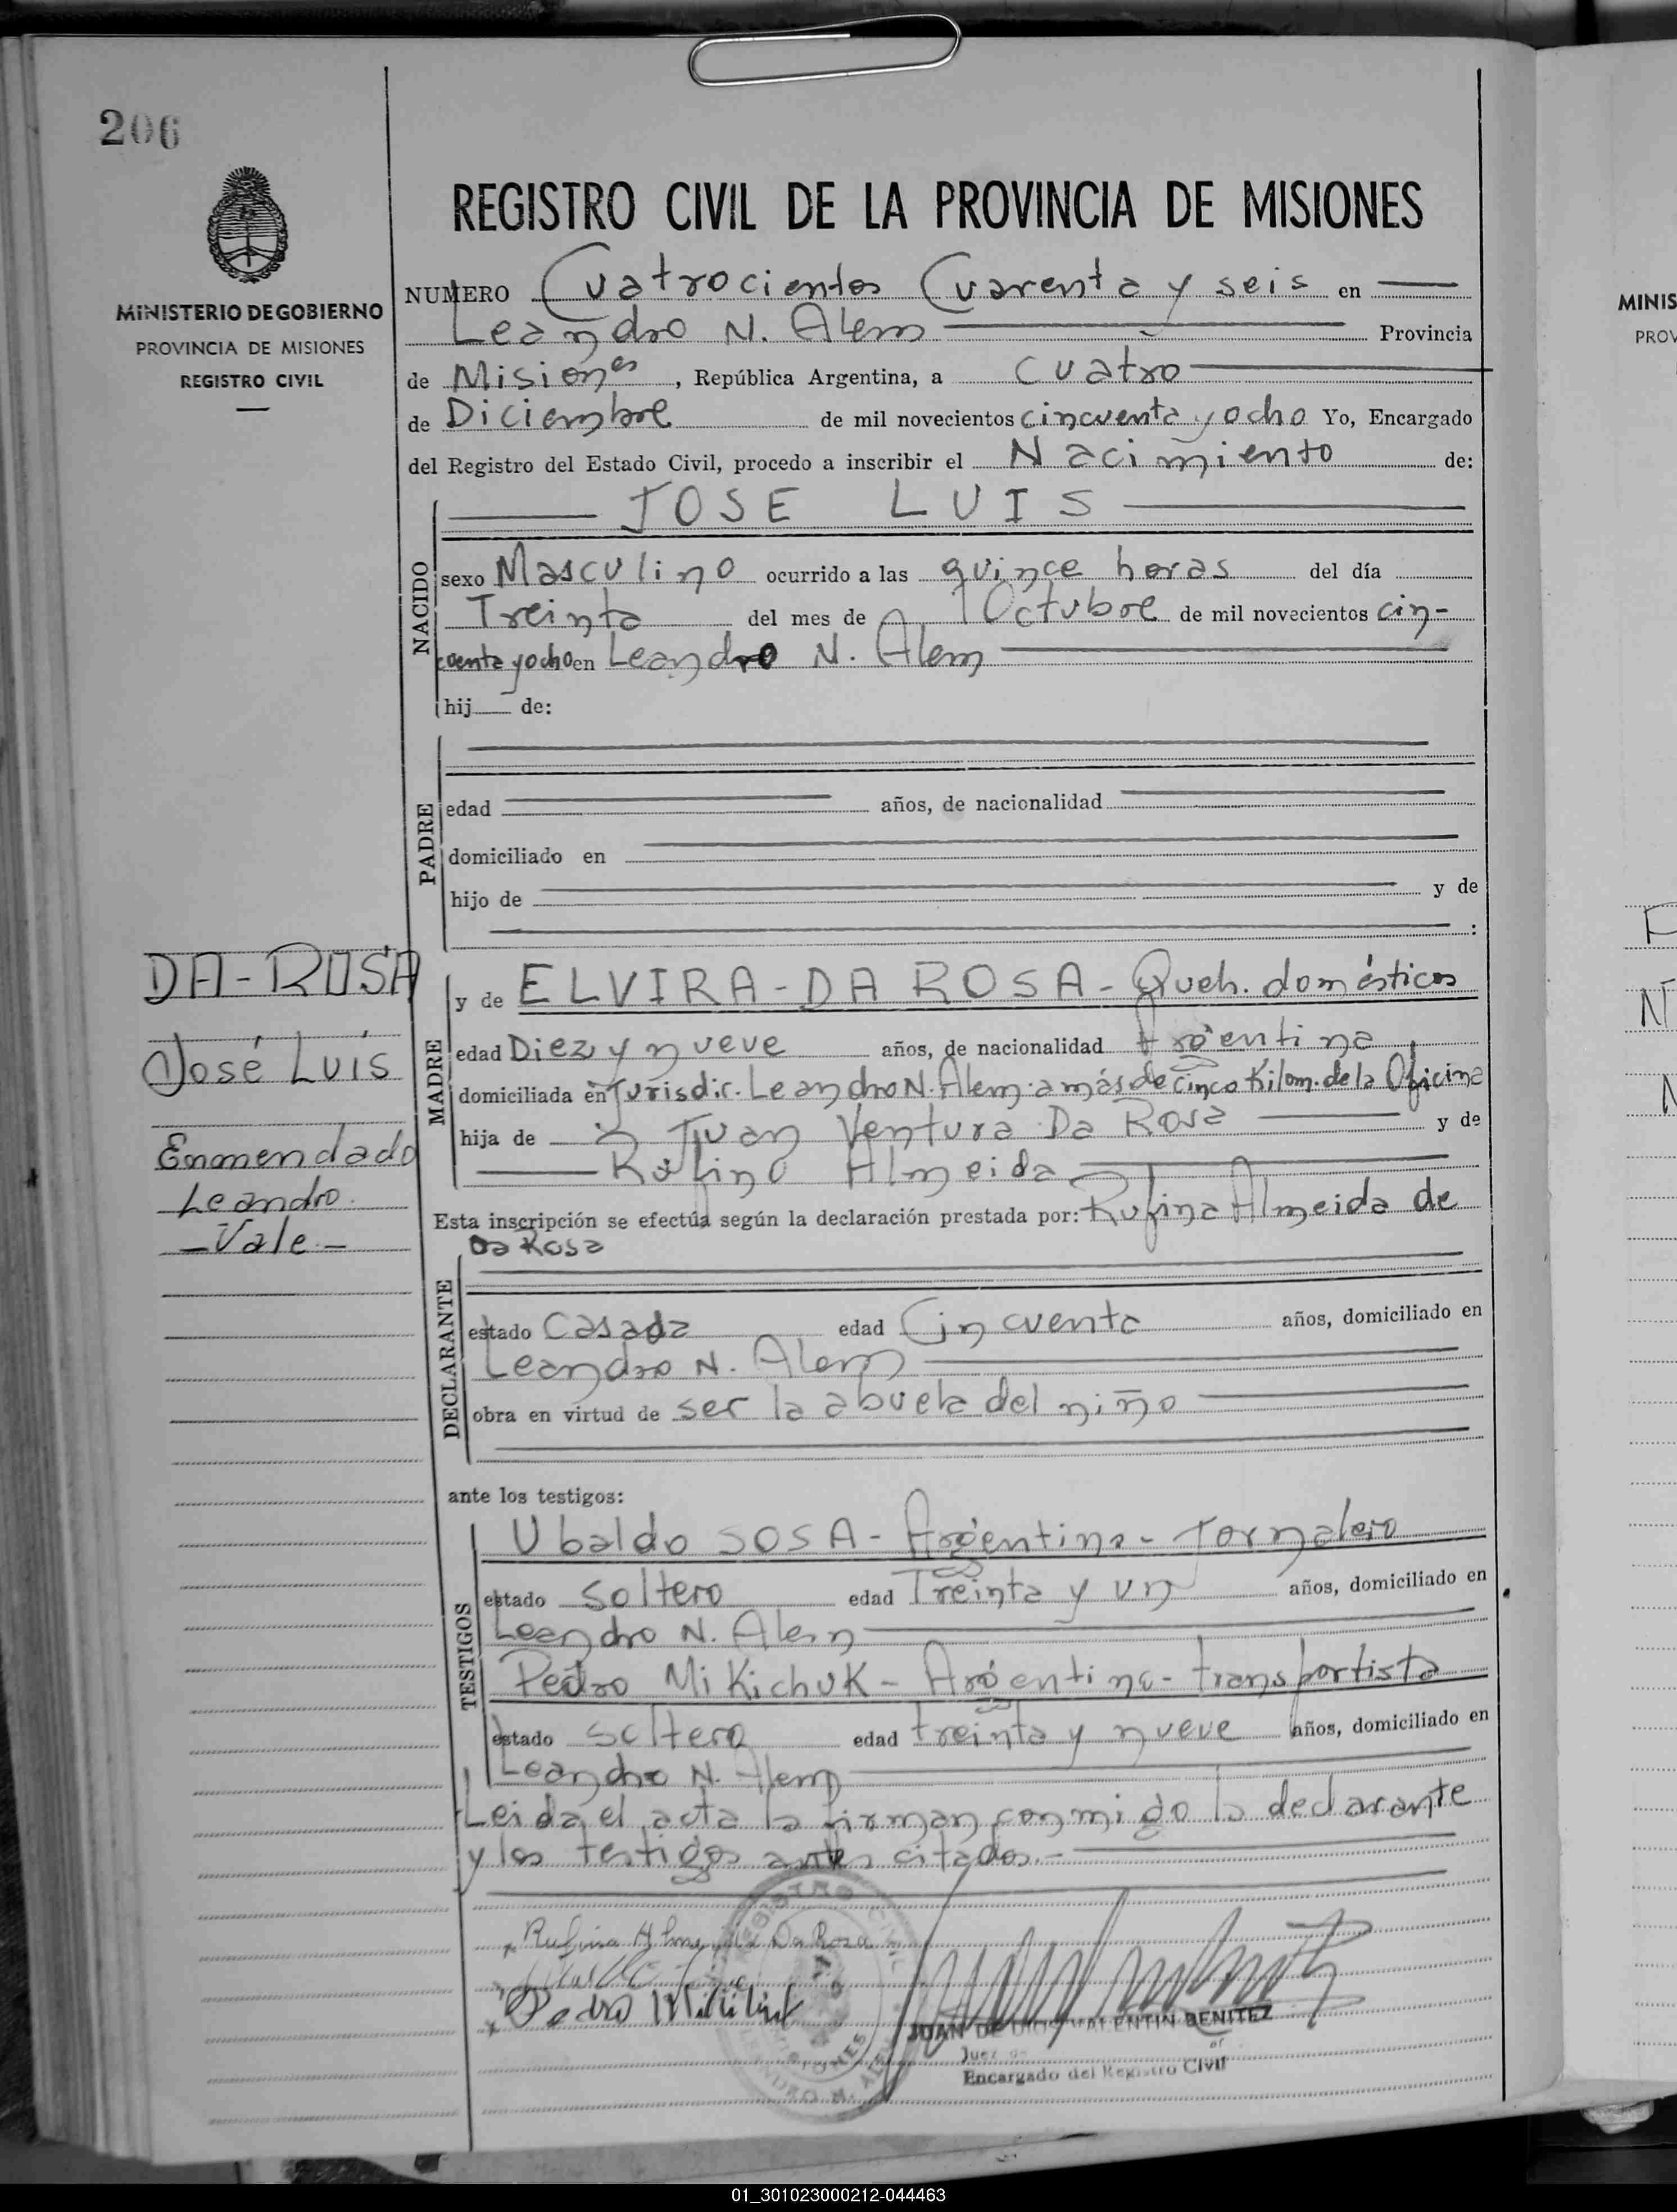 206
MINISTERIO DE GOBIERNO
PROVINCIA DE MISIONES
REGISTRO CIVIL
REGISTRO CIVIL DE LA PROVINCIA DE MISIONES
NUMERO Cuatrocientos Cuarenta y seis en
Leandro N. Alem Provincia
de Misiones, República Argentina, a cuatro
de Diciembre de mil novecientos cincuenta y ocho Yo, Encargado
del Registro del Estado Civil, procedo a inscribir el Nacimiento de:
NACIDO
JOSE LUIS
sexo Masculino ocurrido a las quince horas del día
Treinta del mes de Octubre de mil novecientos cin-
cuenta y ocho en Leandro N. Alem
hij de:
PADRE
edad años, de nacionalidad
domiciliado en
hijo de y de
:
DA-ROSA
José Luis
Enmendado
Leandro.
-Vale-
MADRE
y de ELVIRA-DA ROSA-Queh. domésticos
edad Diez y nueve años, de nacionalidad Argentina
domiciliada en Jurisdic. Leandro N. Alem a más de cinco Kilom. de la Oficina
hija de Juan Ventura Da Rosa y de
Rufina Almeida
Esta inscripción se efectúa según la declaración prestada por: Rufina Almeida de
Da Rosa
DECLARANTE
estado Casada edad Cincuenta años, domiciliado en
Leandro N. Alem
obra en virtud de ser la abuela del niño
ante los testigos:
TESTIGOS
Ubaldo SOSA-Argentino-Jornalero
estado soltero edad Treinta y un años, domiciliado en
Leandro N. Alem
Pedro MiKichuK-Argentino-transportista
estado soltero edad treinta y nueve años, domiciliado en
Leandro N. Alem
Leida el acta la firman conmigo la declarante
y los testigos antes citados.-
Rufina Almeida Da Rosa
Pedro
JUAN DE DIOS VALENTIN BENITEZ
Juez de
Encargado del Registro Civil
MINIS
PROV
01_301023000212-044463